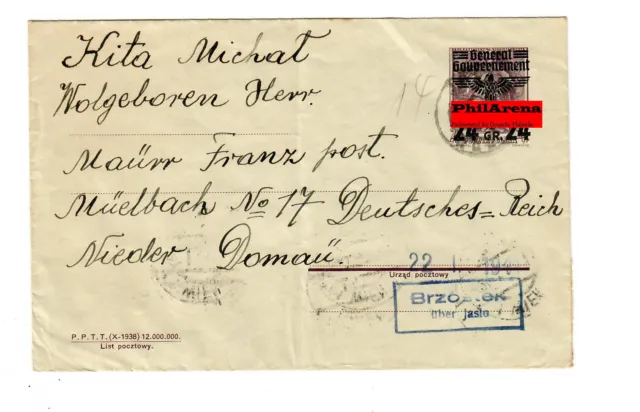 Kita Michał
Wolgeboren Herr.
14
Maürr Franz post.
Müelbach No 17 Deutsches=Reich
Nieder Domaü.
General
Gouvernement
PhilArena
24 GR. 24
22
Urząd pocztowy
Brzostek
über Jasło
P. P. T. T. (X-1938) 12.000.000.
List pocztowy.